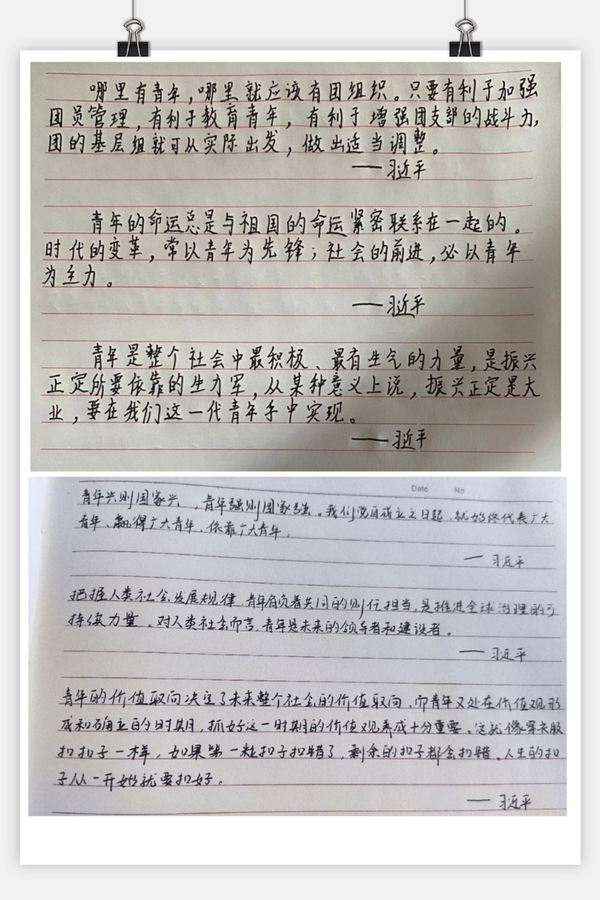 哪里有青年，哪里就应该有团组织。只要有利于加强
团员管理，有利于教育青年，有利于增强团支部的战斗力，
团的基层组就可从实际出发，做出适当调整。
——习近平
青年的命运总是与祖国的命运紧密联系在一起的。
时代的变革，常以青年为先锋；社会的前进，必以青年
为主力。
——习近平
青年是整个社会中最积极、最有生气的力量，是振兴
正定所要依靠的生力军，从某种意义上说，振兴正定是大
业，要在我们这一代青年手中实现。
——习近平
Date No
青年兴则国家兴，青年强则国家强。我们党自成立之日起，就始终代表广大
青年、赢得广大青年、依靠广大青年。
——习近平
把握人类社会发展规律，青年肩负着共同的责任担当，是推进全球治理的可
持续力量。对人类社会而言，青年是未来的领导者和建设者。
——习近平
青年的价值取向决定了未来整个社会的价值取向，而青年又处在价值观形
成和确立的时期，抓好这一时期的价值观养成十分重要。这就像穿衣服
扣扣子一样，如果第一粒扣子扣错了，剩余的扣子都会扣错。人生的扣
子从一开始就要扣好。
——习近平